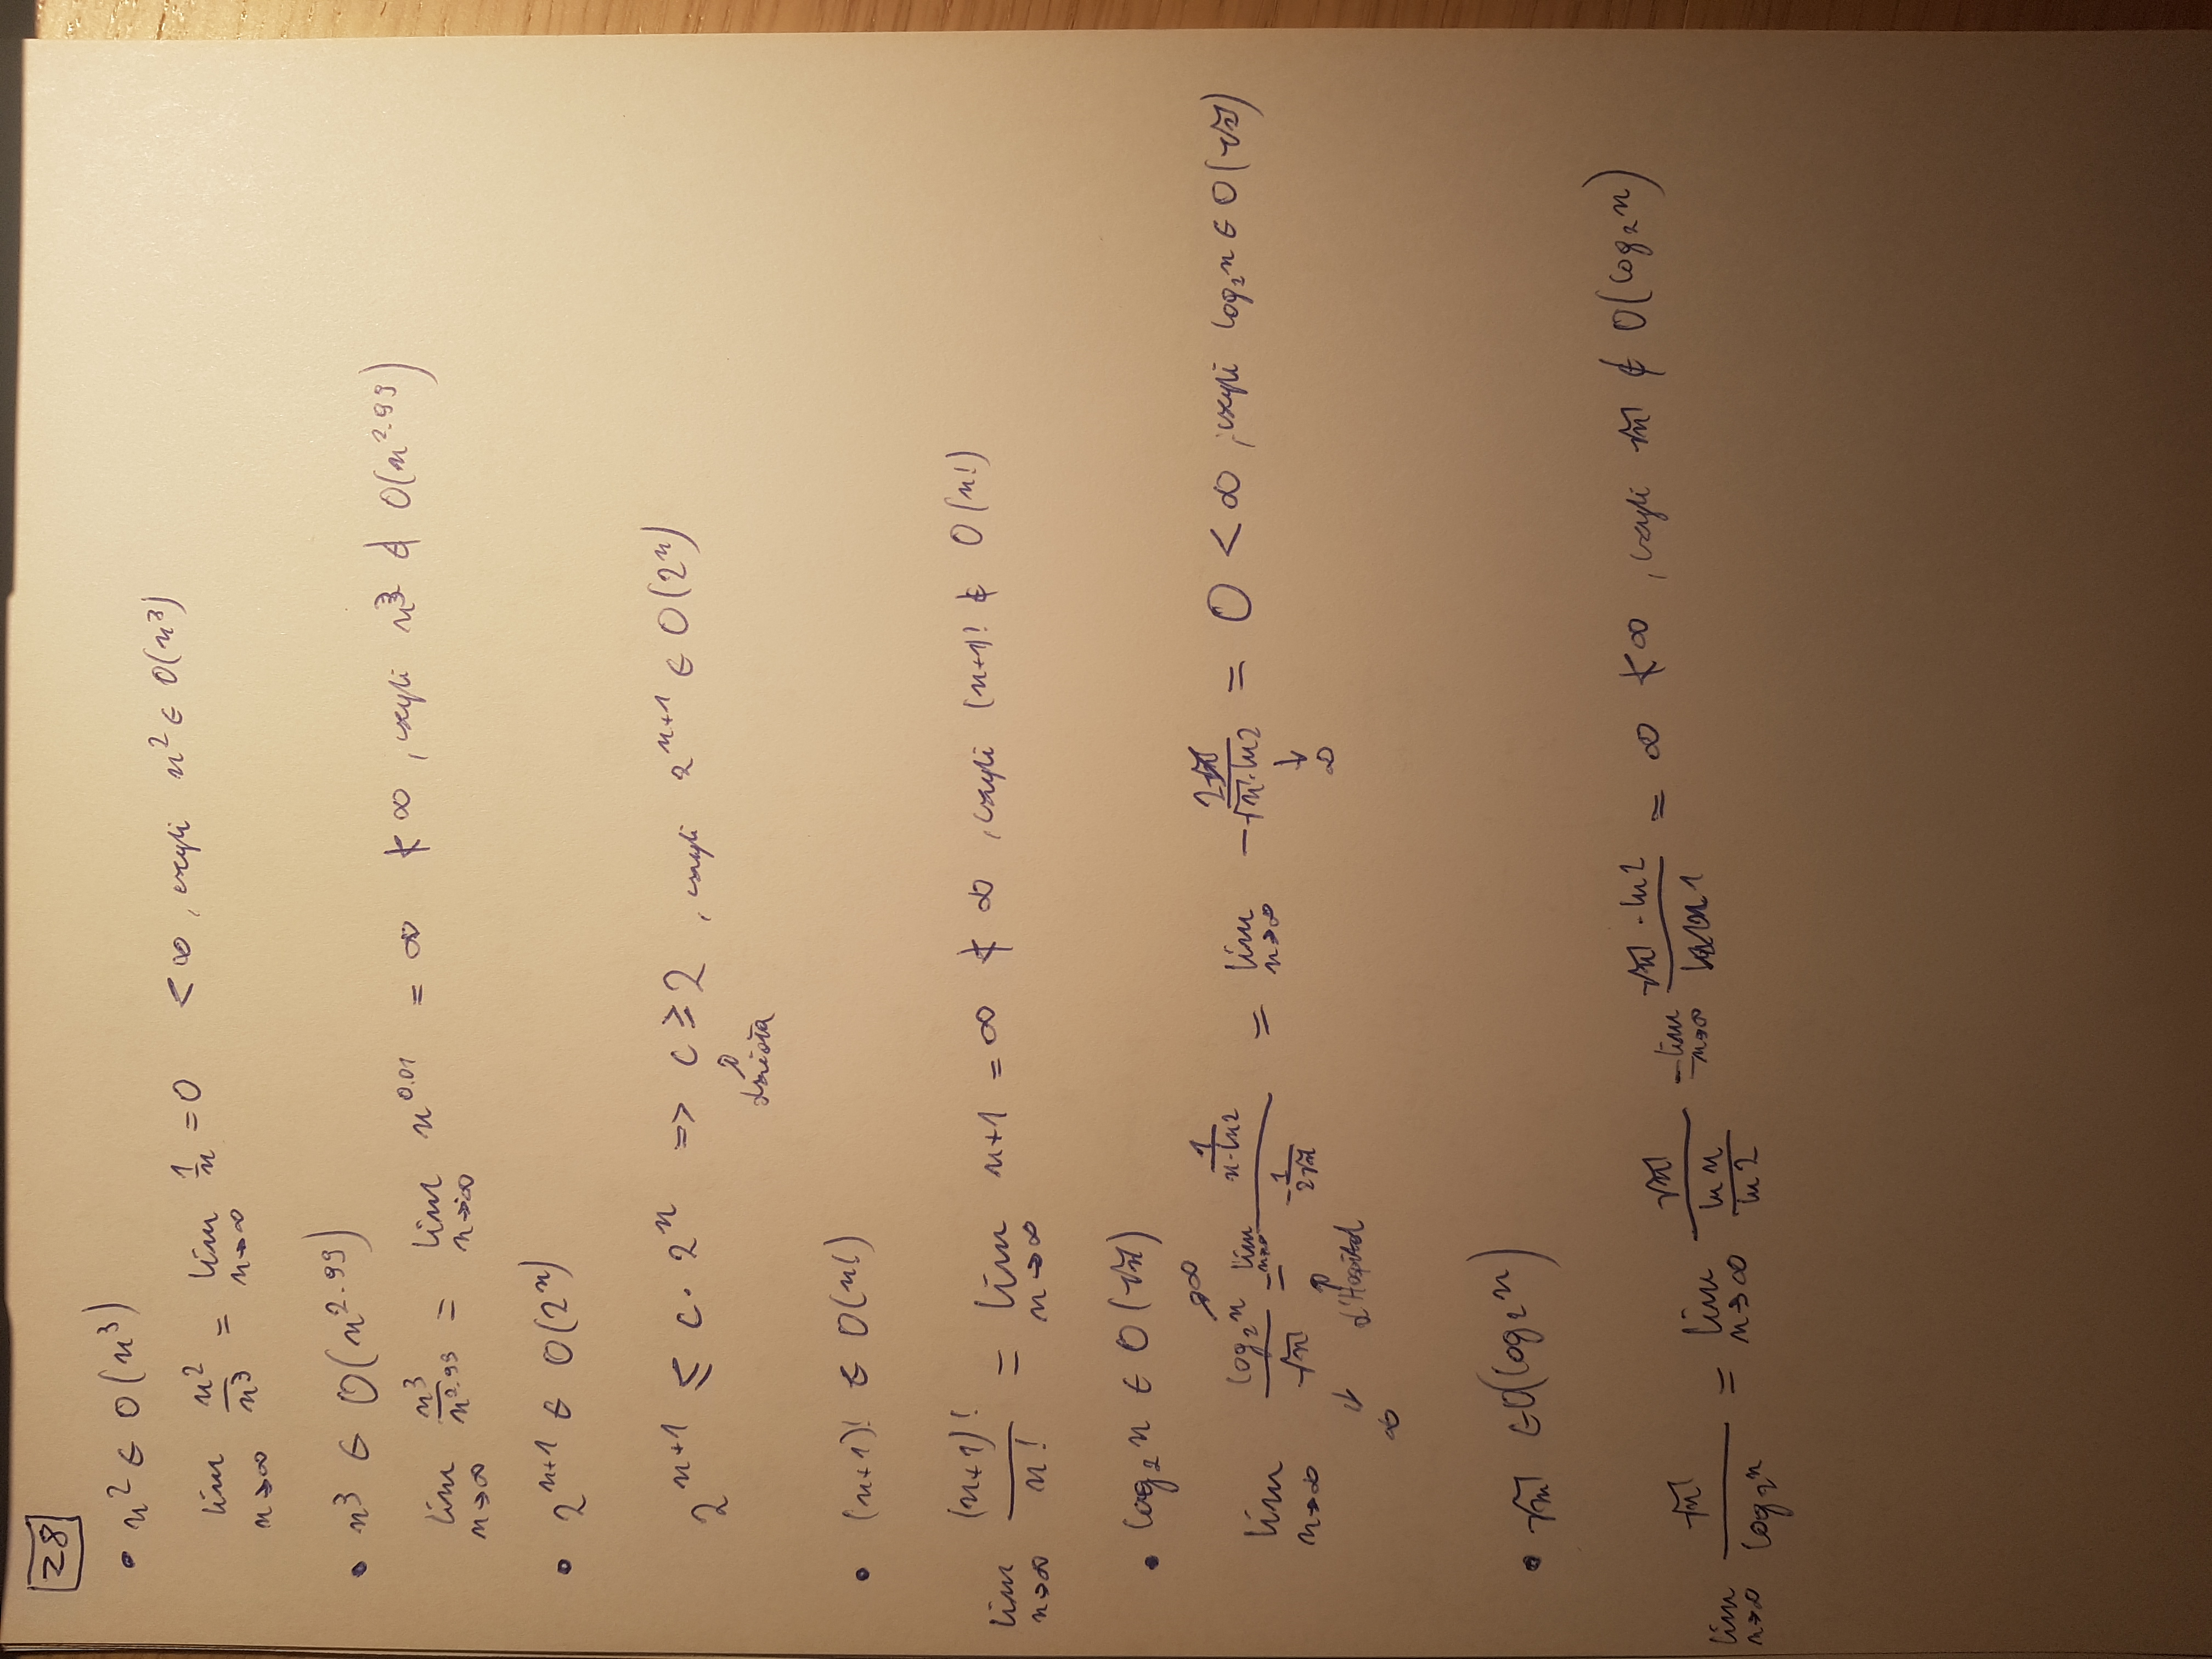 28
• n² ∈ O(n³)
lim n→∞ n²/n³ = lim n→∞ 1/n = 0 < ∞, czyli n² ∈ O(n³)
• n³ ∈ O(n^2.99)
lim n→∞ n³/n^2.99 = lim n→∞ n^0.01 = ∞ ≮ ∞, czyli n³ ∉ O(n^2.99)
• 2^(n+1) ∈ O(2^n)
2^(n+1) ≤ c · 2^n => c ≥ 2, czyli 2^(n+1) ∈ O(2^n)
działa
• (n+1)! ∈ O(n!)
lim n→∞ (n+1)!/n! = lim n→∞ n+1 = ∞ ≮ ∞, czyli (n+1)! ∉ O(n!)
• log₂n ∈ O(√n)
lim n→∞ log₂n →∞ / √n = lim n→∞ (1/(n·ln2)) / (-1/(2√n)) = lim n→∞ -2/(√n·ln2) = 0 < ∞, czyli log₂n ∈ O(√n)
↓ ∞ d'Hospital ↓ ∞
• √n ∈ O(log₂n)
lim n→∞ √n/log₂n = lim n→∞ √n/(ln n/ln 2) = lim n→∞ √n · ln2 / = ∞ ≮ ∞, czyli √n ∉ O(log₂n)